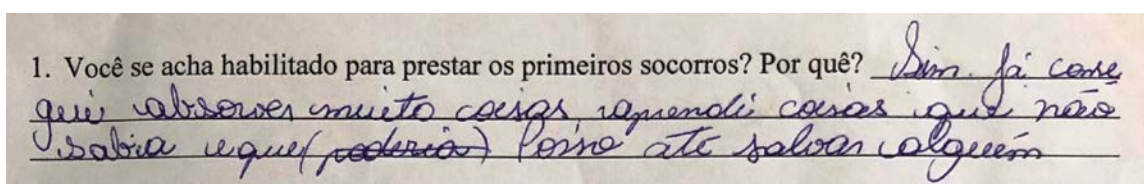 1. Você se acha habilitado para prestar os primeiros socorros? Por quê? Sim. Já conse
guei absorver muito coisas, aprendi coisas que não
sabia e que (poderia) Posso até salvar alguém